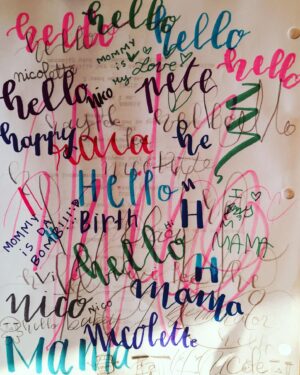 hello
hello
hello
hello
MOMMY
is
my Love
nicolette
hello
nico
pete
hello
happy
he
Hello
H
Birth
H
MAMA
MOMMY
IS DA
BOMB!!
hello
H
mama
nico
nico
Nicolette
Mama